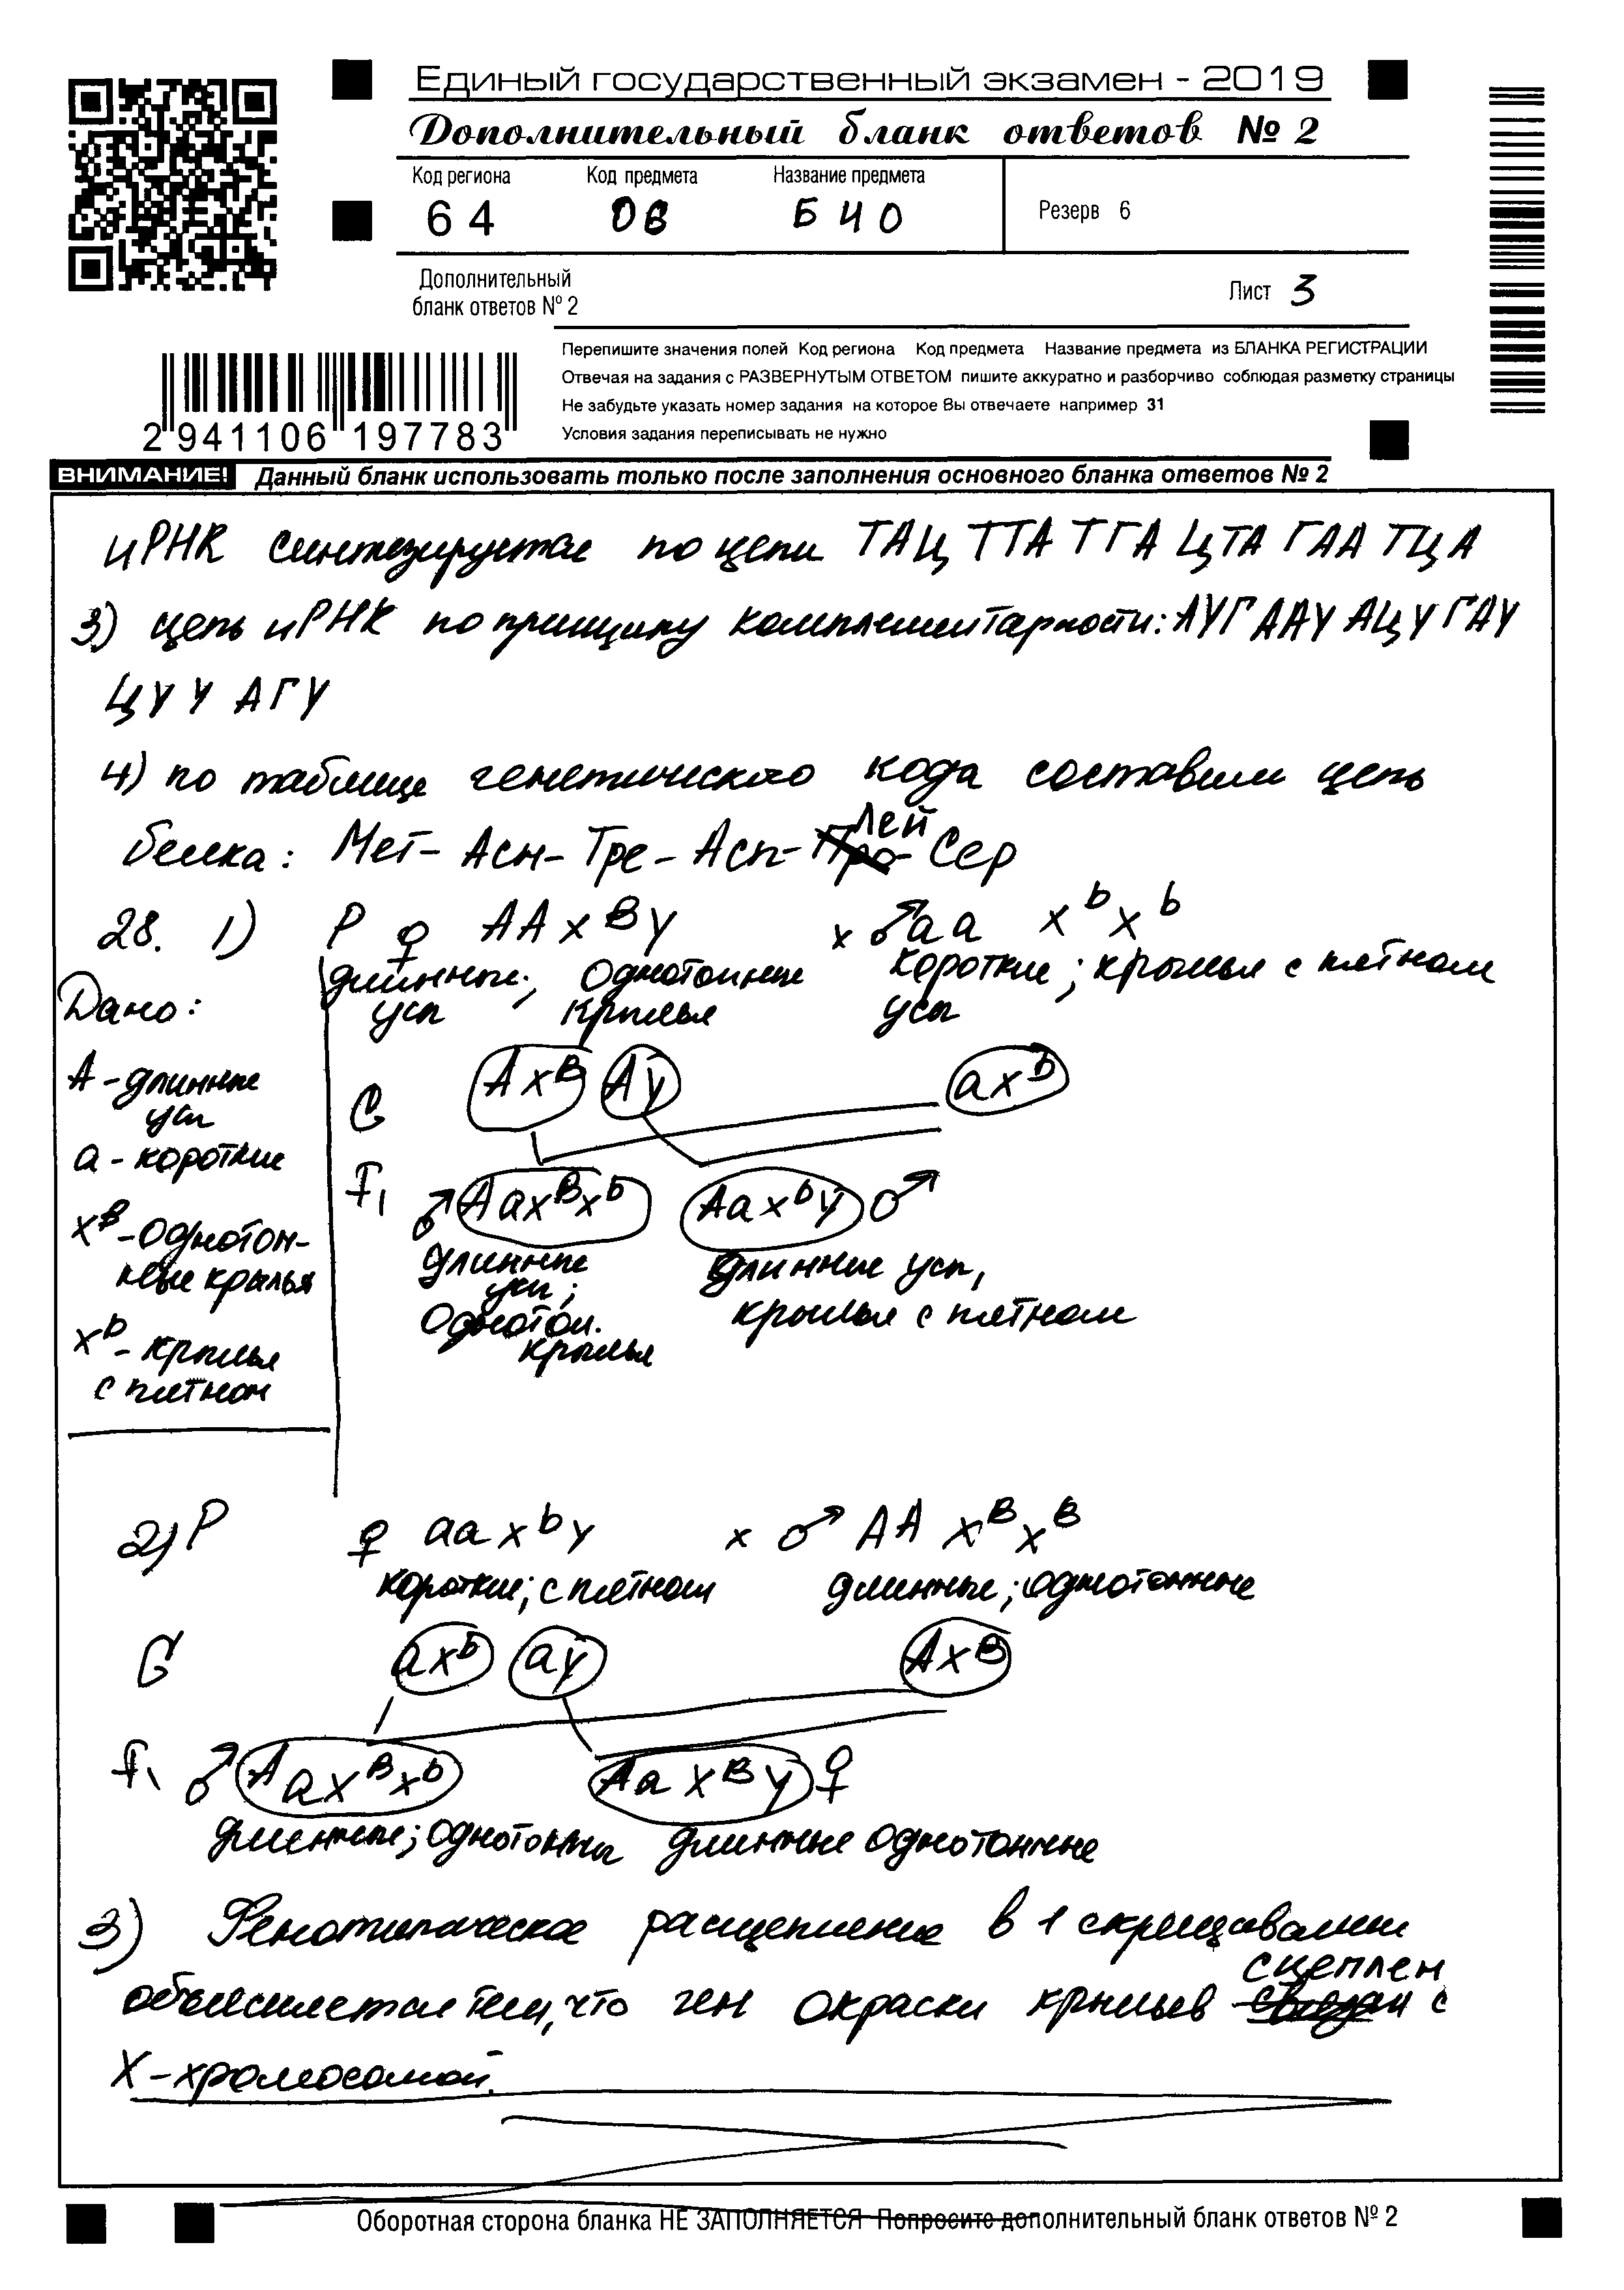 Единый государственный экзамен - 2019
Дополнительный бланк ответов № 2
Код региона Код предмета Название предмета
64 06 БИО
Резерв 6
Дополнительный
бланк ответов № 2
Лист 3
Перепишите значения полей Код региона Код предмета Название предмета из БЛАНКА РЕГИСТРАЦИИ
Отвечая на задания с РАЗВЕРНУТЫМ ОТВЕТОМ пишите аккуратно и разборчиво соблюдая разметку страницы
Не забудьте указать номер задания на которое Вы отвечаете например 31
Условия задания переписывать не нужно
2 941106 197783
ВНИМАНИЕ! Данный бланк использовать только после заполнения основного бланка ответов № 2
иРНК синтезируется по цепи ТАЦ ТТА ТГА ЦТА ГАА ТЦА
3) цепь иРНК по принципу комплементарности: АУГ ААУ АЦУ ГАУ
ЦУУ АГУ
4) по таблице генетического кода составим цепь
белка: Мет- Асн- Тре- Асп- Лей Сер
28. 1) P ♀ AA x^B y x ♂ aa x^b x^b
длинные; однотонные короткие; крылья с пятном
усы крылья усы
Дано:
A - длинные
усы
a - короткие
x^B - однотон-
ные крылья
x^b - крылья
с пятном
G Ax^B Ay ax^b
F1 ♂ Aax^Bx^b Aax^by ♂
длинные длинные усы,
усы; крылья с пятном
однотон.
крылья
2) P ♀ aa x^b y x ♂ AA x^B x^B
короткие; с пятном длинные; однотонные
G ax^b ay Ax^B
F1 ♂ Aax^Bx^b Aa x^B y ♀
длинные; однотонны длинные однотонные
3) Фенотипическое расщепление в 1 скрещивании
объясняется тем, что ген окраски крыльев сцеплен с
X-хромосомой.
Оборотная сторона бланка НЕ ЗАПОЛНЯЕТСЯ Попросите дополнительный бланк ответов № 2